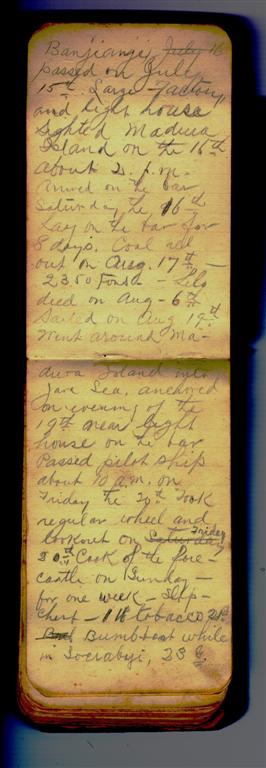 Banjiangi, July 16
passed on July
15th. Large Factory
and light house
Sighted Madura
Island on the 15th
about 2. p.m.
Arrived on the bar
Saturday the 16th
Lay on the bar for
8 days. Coal all
out on Aug. 17th —
2350 Tons. —
died on Aug - 6th
Sailed on Aug 19th
Went around Ma-
dura Island into
Java Sea, anchored
on evening of the
19th near light
house on the bar
Passed pilot ship
about 10 a.m. on
Friday the 20th Took
regular wheel and
lookout on Saturday Friday
20th Cook of the fore-
castle on Sunday —
for one week — Slop-
chest — 1 lb tobacco
Bumboat while
in Soerabyi, 23